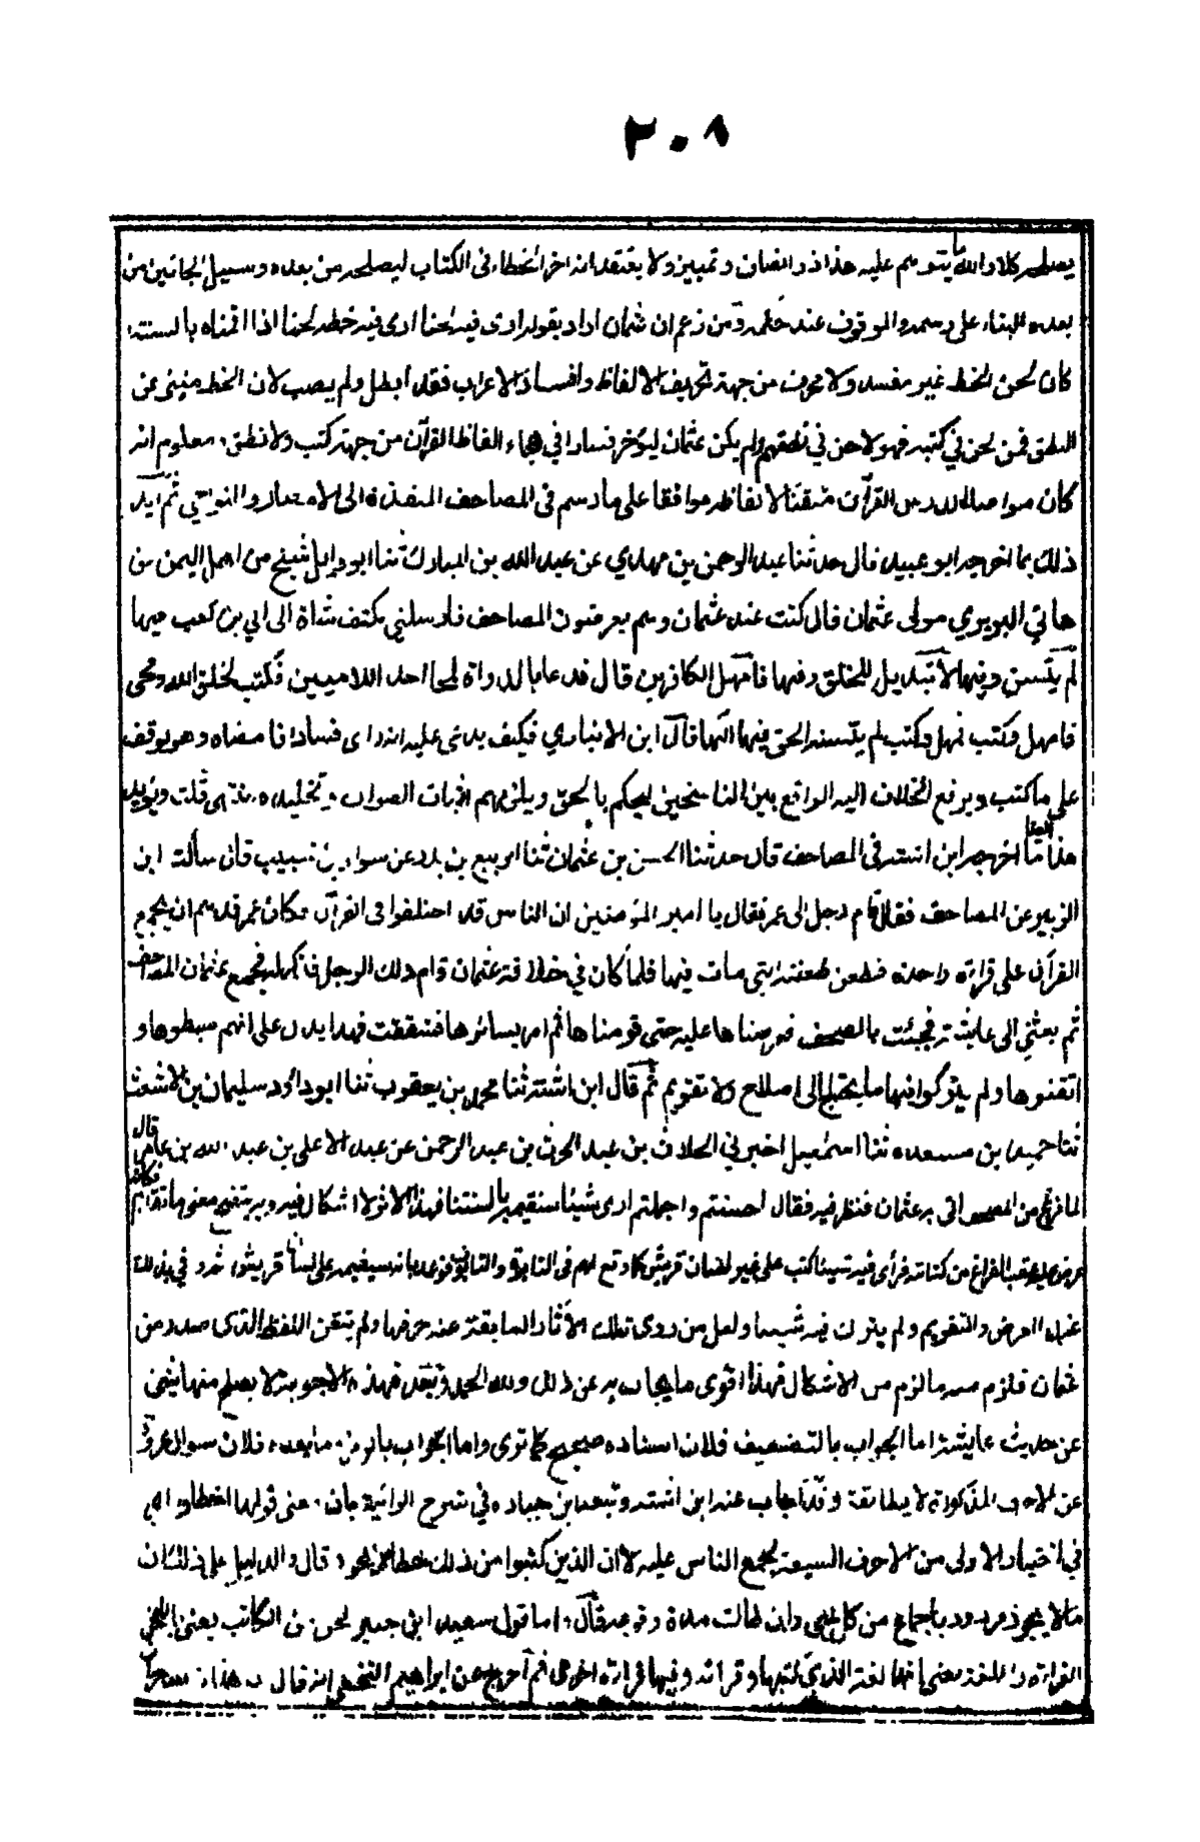 ٢٠٨
يصلحه كلا والله ما يتوهم عليه هذا ذو انصاف وتمييز ولا يعتقد انه اخر الخطاء فى الكتاب ليصلحه من بعده وسبيل الجائين من
بعده البناء على رسمه والوقوف عند حكمه ومن زعم ان عثمان اراد بقوله ارى فيه لحنا ارى فى خطه لحنا اذا اقمناه بالسنتنا
كان لحن الخط غير مفسد ولا محرف من جهة تحريف الالفاظ وافساد الاعراب فقد ابطل ولم يصب لان الخط منبئ عن
النطق فمن لحن في كتبه فهو لاحن في نطقه ولم يكن عثمان ليؤخر فسادا في هجاء الفاظ القرآن من جهة كتب ولا نطق ومعلوم انه
كان مواصلا لدرس القرآن متقنا لالفاظه موافقا على ما رسم فى المصاحف المنفذة الى الامصار والنواحي ثم ايد
ذلك بما اخرجه ابو عبيد قال حدثنا عبد الرحمن بن مهدي عن عبد الله بن المبارك ثنا ابو وايل شيخ من اهل اليمن عن
هانئ البربري مولى عثمان قال كنت عند عثمان وهم يعرضون المصاحف فارسلني بكتف شاة الى ابي بن كعب فيها
لم يتسن وفيها لا تبديل للخلق وفيها فامهل الكافرين قال فدعا بالدواة فمحا احد اللامين فكتب لخلق الله ومحى
فامهل وكتب فمهل وكتب لم يتسنه الحق فيها الها قال ابن الانباري فكيف يدعى عليه انه راى فسادا فامضاه وهو يوقف
على ما كتب ويرفع الخلاف اليه الواقع بين الناسخين ليحكم بالحق ويلزمهم اثبات الصواب وتخليده انتهى قلت ويؤيد
هذا ايضا ما اخرجه ابن اشته فى المصاحف قال حدثنا الحسن بن عثمان ثنا الربيع بن بدر عن سوار بن شبيب قال سألت ابن
الزبير عن المصاحف فقال قام رجل الى عمر فقال يا امير المؤمنين ان الناس قد اختلفوا فى القرآن فكان عمر قد هم ان يجمع
القرآن على قراءة واحدة فطعن طعنته التى مات فيها فلما كان في خلافة عثمان قام ذلك الرجل فذكر له فجمع عثمان المصاحف
ثم بعثني الى عايشة فجئت بالصحف فعرضناها عليه حتى قومناها ثم امر بسائرها فشققت فهذا يدل على انهم ضبطوها و
اتقنوها ولم يتركوا فيها ما يحتاج الى اصلاح ولا تقويم ثم قال ابن اشته ثنا محمد بن يعقوب ثنا ابو داود سليمان بن الاشعث
ثنا حميد بن مسعده ثنا اسمعيل اخبرني الحارث بن عبد الرحمن عن عبد الاعلى بن عبد الله بن عامر قال
لما فرغ من المصحف اتى به عثمان فنظر فيه فقال احسنتم واجملتم ارى شيئا سنقيمه بالسنتنا فهذا الاثر لا اشكال فيه وبه يتضح معنى ما تقدم فكانه
عرض عليه عقب الفراغ من كتابته فرأى فيه شيئا كتب على غير لسان قريش كما وقع لهم فى التابوة والتابوت فوعد بانه سيقيمه على لسان قريش ثم وفى بذلك
عند العرض والتقويم ولم يترك فيه شيئا ولعل من روى تلك الآثار السابقة عنه حرفها ولم يتقن اللفظ الذى صدر من
عثمان فلزم منه ما لزم من الاشكال فهذا اقوى ما يجاب به عن ذلك ولله الحمد وبعد فهذه الاجوبة لا يصلح منها شئ
عن حديث عايشة اما الجواب بالتضعيف فلان اسناده صحيح كما ترى واما الجواب بالرمز وما بعده فلان سوال عروة
عن الاحرف المذكورة لا يطابقه وقد اجاب عنه ابن اشته وتبعه ابن جباره في شرح الرائية بان معنى قولها اخطاوا اى
في اختيار الاولى من الاحرف السبعة لجمع الناس عليه لا ان الذين كتبوا من ذلك خطأ لا يجوز قال والدليل على ذلك ان
مالا يجوز مردود باجماع من كل شئ وان طالت مدة وقوعه قال واما قول سعيد ابن جبير لحن من الكاتب يعنى باللحن
القراءة واللغة يعنى انها لغة الذي كتبها وقراءته وفيها قراءة اخرى ثم اخرج عن ابراهيم النخعي انه قال ان هذان لساحران